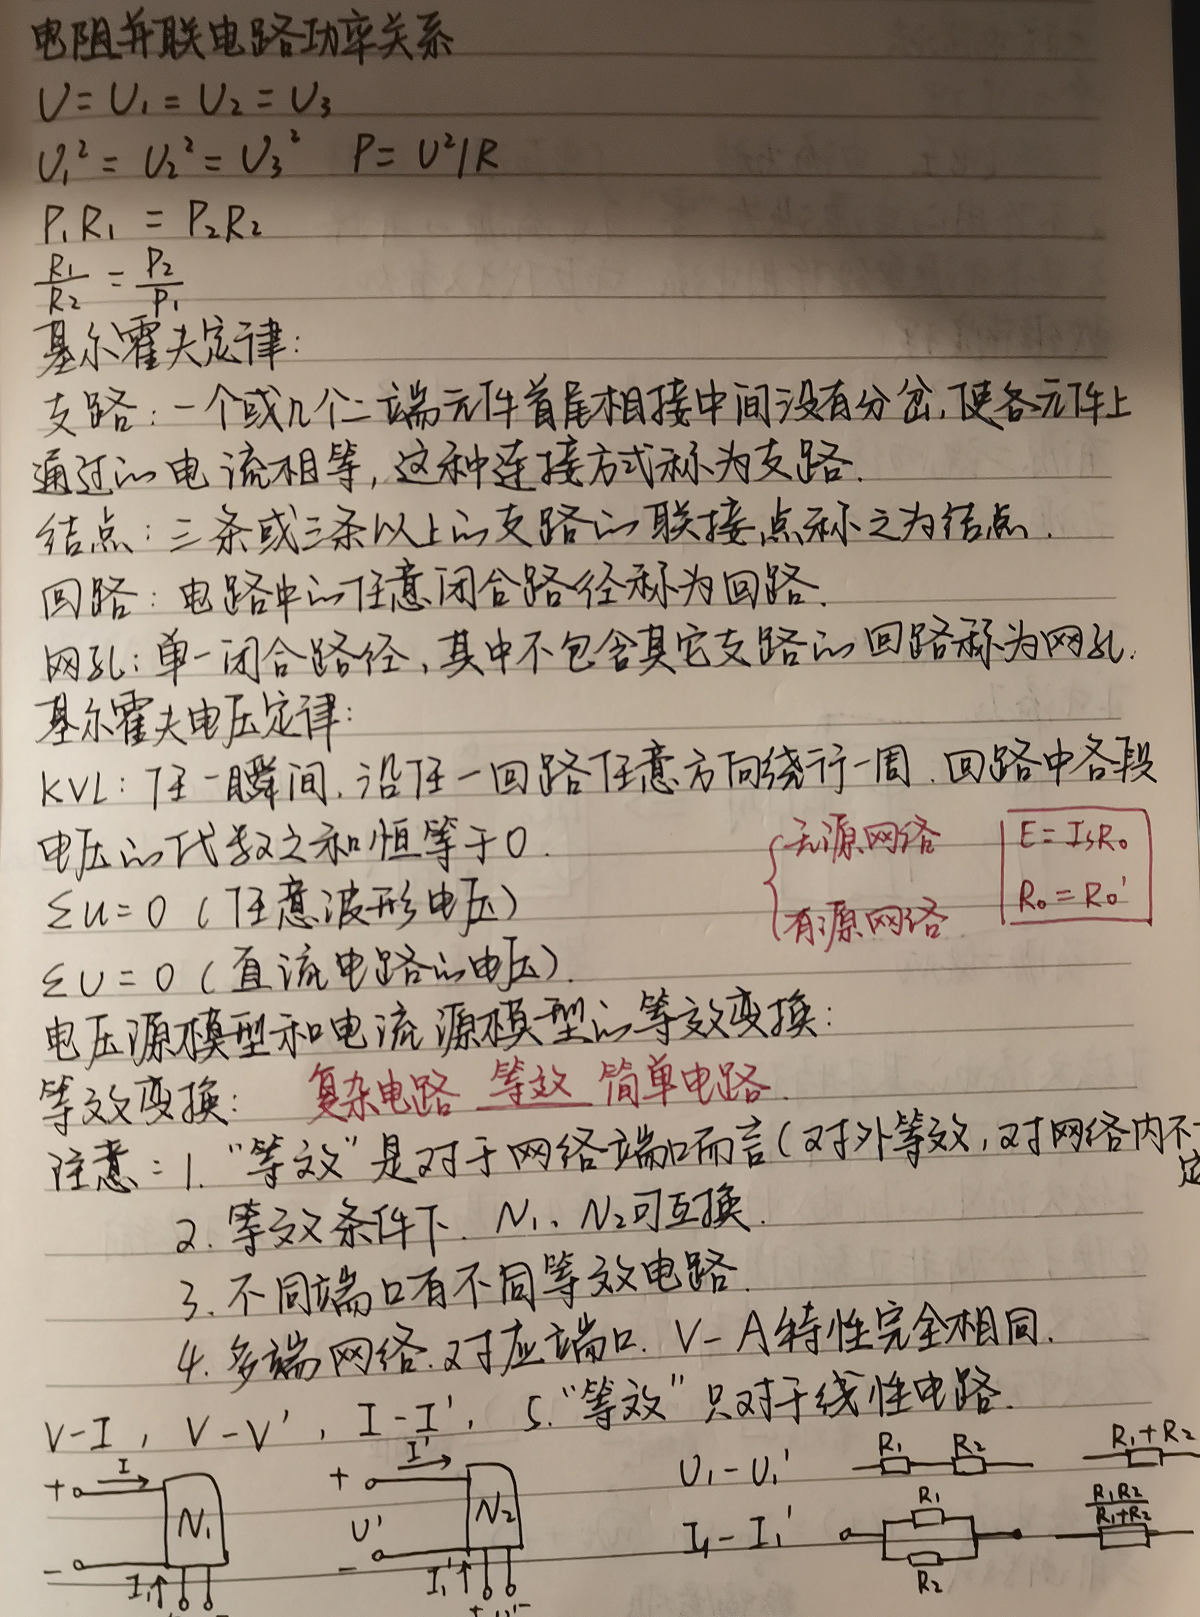 电阻并联电路功率关系
U = U₁ = U₂ = U₃
U₁² = U₂² = U₃² P = U²/R
P₁R₁ = P₂R₂
R₁/R₂ = P₂/P₁
基尔霍夫定律:
支路: 一个或几个二端元件首尾相接中间没有分岔, 使各元件上
通过的电流相等, 这种连接方式称为支路.
结点: 三条或三条以上的支路的联接点称之为结点.
回路: 电路中的任意闭合路径称为回路.
网孔: 单一闭合路径, 其中不包含其它支路的回路称为网孔.
基尔霍夫电压定律:
KVL: 任一瞬间, 沿任一回路任意方向绕行一周. 回路中各段
电压的代数之和恒等于0.
无源网络
有源网络
E = IsR₀
R₀ = R₀'
Σu = 0 (任意波形电压)
ΣU = 0 (直流电路的电压).
电压源模型和电流源模型的等效变换:
等效变换: 复杂电路 等效 简单电路.
注意: 1. "等效"是对于网络端口而言(对外等效, 对网络内不
应
2. 等效条件下. N₁、N₂可互换.
3. 不同端口有不同等效电路.
4. 多端网络. 对应端口. V-A特性完全相同.
5. "等效"只对于线性电路.
V-I, V-V', I-I',
+ I N₁ - I₁
+ I' U' N₂ - I₁'
U₁-U₁' R₁ R₂ R₁+R₂
I₁-I₁' R₁ R₂ R₁R₂/R₁+R₂